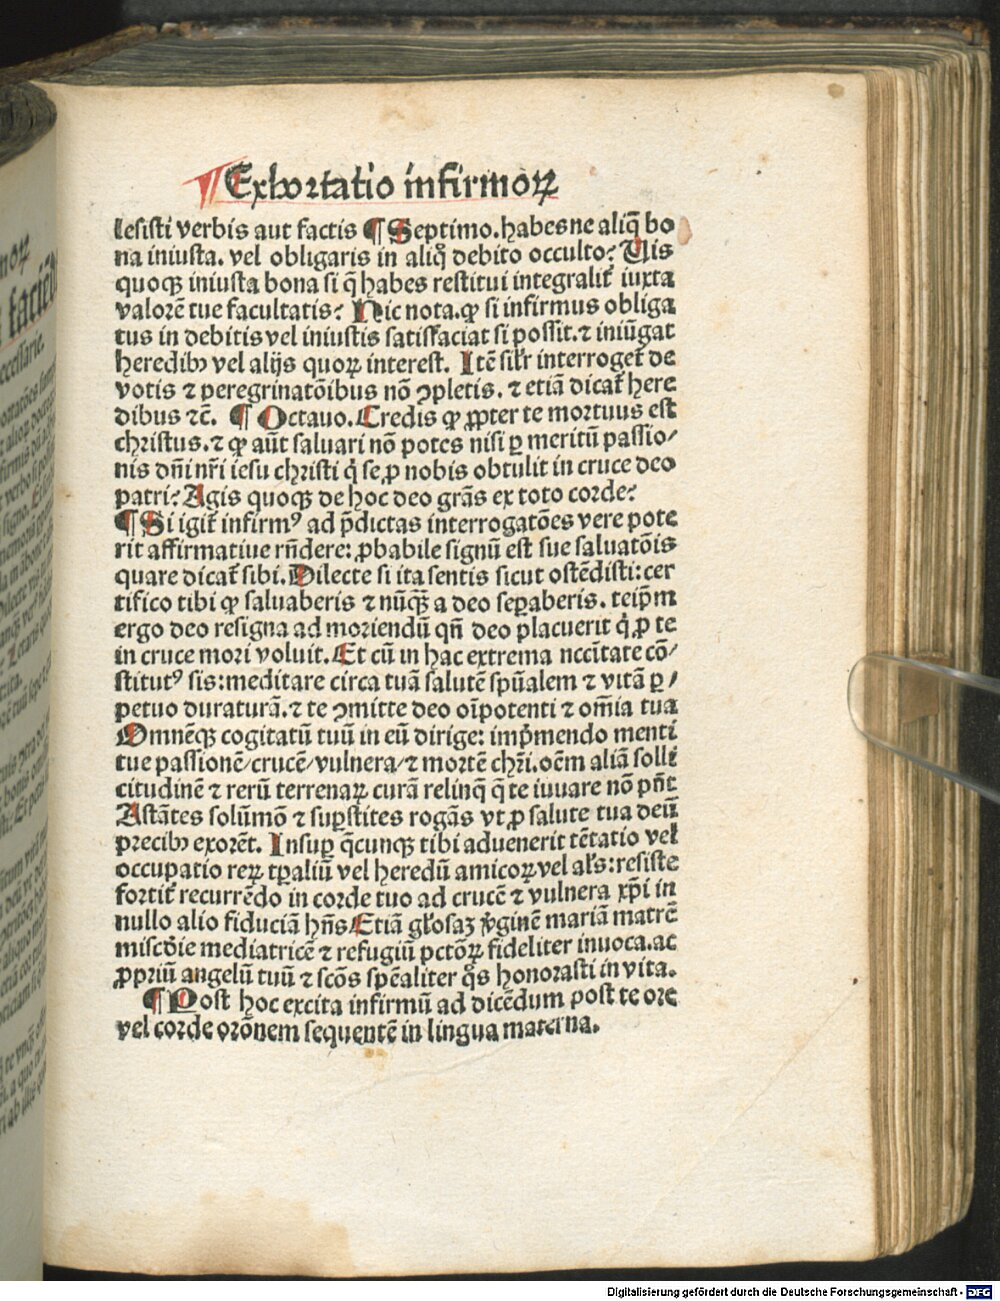 ¶ Exhortatio infirmoꝝ
lesisti verbis aut factis ¶ Septimo. habes ne aliq̄ bo
na iniusta. vel obligaris in aliq̊ debito occulto? Uis
quoqꝫ iniusta bona si q̄ habes restitui integralit̄ iuxta
valorē tue facultatis? Hic nota. ꝙ si infirmus obliga
tus in debitis vel iniustis satisfaciat si possit. ⁊ iniūgat
heredibꝰ vel alijs quoꝝ interest. Itē silr interroget̄ de
votis ⁊ peregrinatōibus nō ꝯpletis. ⁊ etiā dicat̄ here
dibus ⁊c̄. ¶ Octauo. Credis ꝙ ꝓpter te mortuus est
christus. ⁊ ꝙ aūt saluari nō potes nisi ꝑ meritū passio⸗
nis dn̄i nr̄i iesu christi q̇ se ꝓ nobis obtulit in cruce deo
patri? Agis quoqꝫ de hoc deo gr̄as ex toto corde?
¶ Si igit̄ infirmꝰ ad p̄dictas interrogatōes vere pote
rit affirmatiue rn̄dere: ꝓbabile signū est sue saluatōis
quare dicat̄ sibi. Dilecte si ita sentis sicut ostēdisti: cer
tifico tibi ꝙ saluaberis ⁊ nūq̄ꝫ a deo seꝑaberis. teip̄m
ergo deo resigna ad moriendū qn̄ deo placuerit q̇ ꝓ te
in cruce mori voluit. Et cū in hac extrema nccītate cō⸗
stitutꝰ sis: meditare circa tuā salutē spūalem ⁊ vitā ꝑ⸗
petuo duraturā. ⁊ te ꝯmitte deo oīpotenti ⁊ om̄ia tua
Omnēqꝫ cogitatū tuū in eū dirige: imp̄mendo menti
tue passionē/crucē/vulnera/⁊ mortē chr̄i. oēm aliā solli
citudinē ⁊ rerū terrenaꝝ curā relinq̄ q̄ te iuuare nō pn̄t
Astātes solūmō ⁊ suꝑstites rogās vt ꝓ salute tua deū
precibꝰ exorēt. Insuꝑ q̄cunqꝫ tibi aduenerit tētatio vel
occupatio reꝝ tꝑaliū vel heredū amicoꝝ vel al's: resiste
fortit̄ recurrēdo in corde tuo ad crucē ⁊ vulnera xp̄i in
nullo alio fiduciā hn̄s Etiā gl'osaꝫ v̄ginē mariā matrē
miscd̄ie mediatricē ⁊ refugiū pctōꝝ fideliter inuoca. ac
ꝓpriū angelū tuū ⁊ scōs spēaliter q̊s honorasti in vita.
¶ Post hoc excita infirmū ad dicēdum post te ore
vel corde orōnem sequentē in lingua materna.
Digitalisierung gefördert durch die Deutsche Forschungsgemeinschaft - DFG